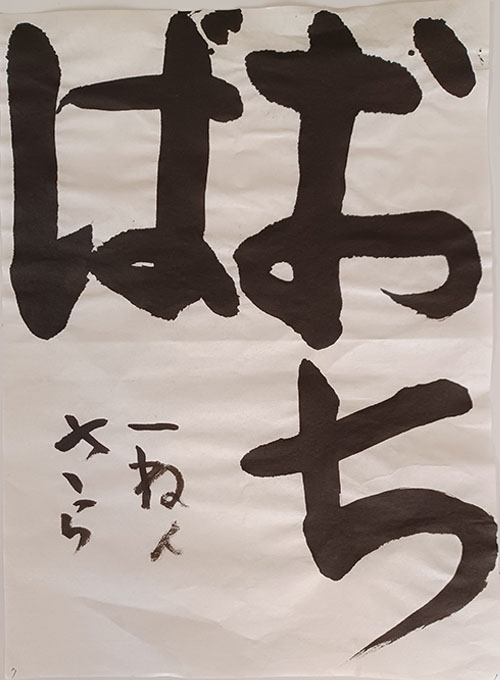 おち
ば
一ねん
さくら